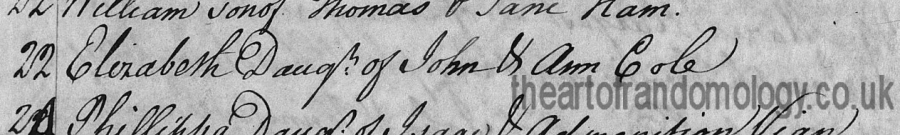 22 William son of Thomas & Jane Ham.
22 Elizabeth Daugr. of John & Ann Cole
theartofrandomology.co.uk
Phillippa Daugr. of Isaac & Admonition